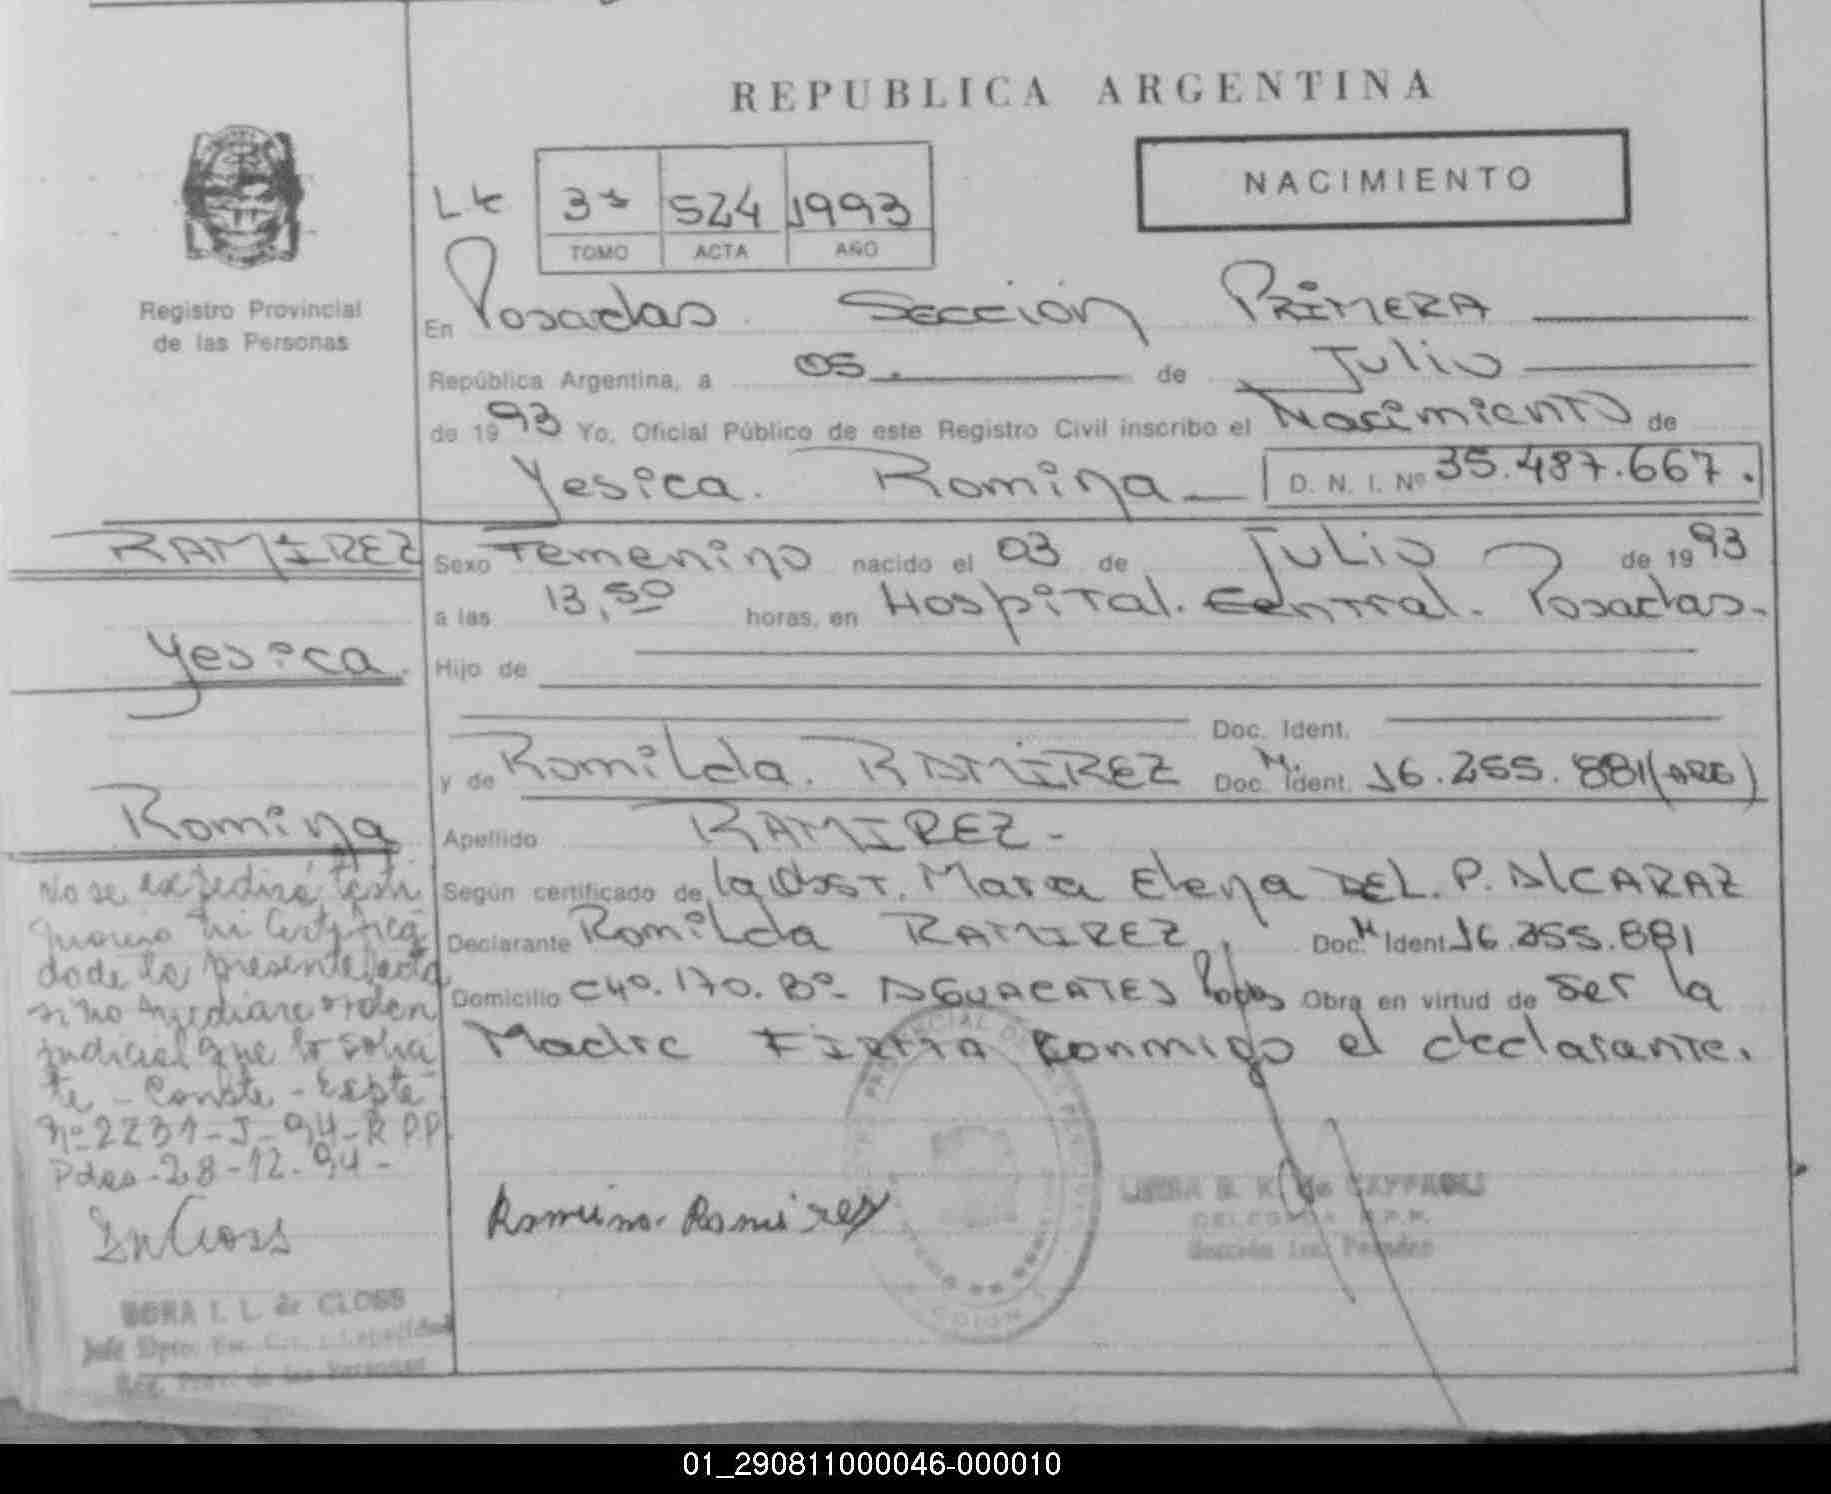 REPUBLICA ARGENTINA
NACIMIENTO
3ª 524 1993
TOMO ACTA AÑO
Registro Provincial
de las Personas
En Posadas Sección PRIMERA
República Argentina, a 05 de Julio
de 1993 Yo, Oficial Público de este Registro Civil inscribo el Nacimiento de
Yesica Romina D. N. I. Nº 35.487.667.
RAMIREZ
Yesica.
Romina
Sexo Femenino nacido el 03 de Julio de 1993
a las 13,50 horas, en Hospital. Central. Posadas.
Hijo de
Doc. Ident.
y de Romilda. RAMIREZ Doc. M. Ident. 16.255.881 (ARG)
Apellido RAMIREZ-
Según certificado de la Obst. Maria Elena DEL. P. ALCARAZ
Declarante Romilda RAMIREZ Doc. M Ident. 16.255.881
Domicilio C4º. 170. Bº- AGUACATES Obra en virtud de ser la
Madre Firma conmigo el declarante.
No se expedirá testi
monio ni certifica
do de la presente acta
si no mediare orden
judicial que lo solici
te - Conste - Expte
Nº 2231-J-94-R P.P
Pdas-28-12-94-
I. L. de CLOSS
DELEGADA R.P.P.
Sección 1ra. Posadas
01_290811000046-000010